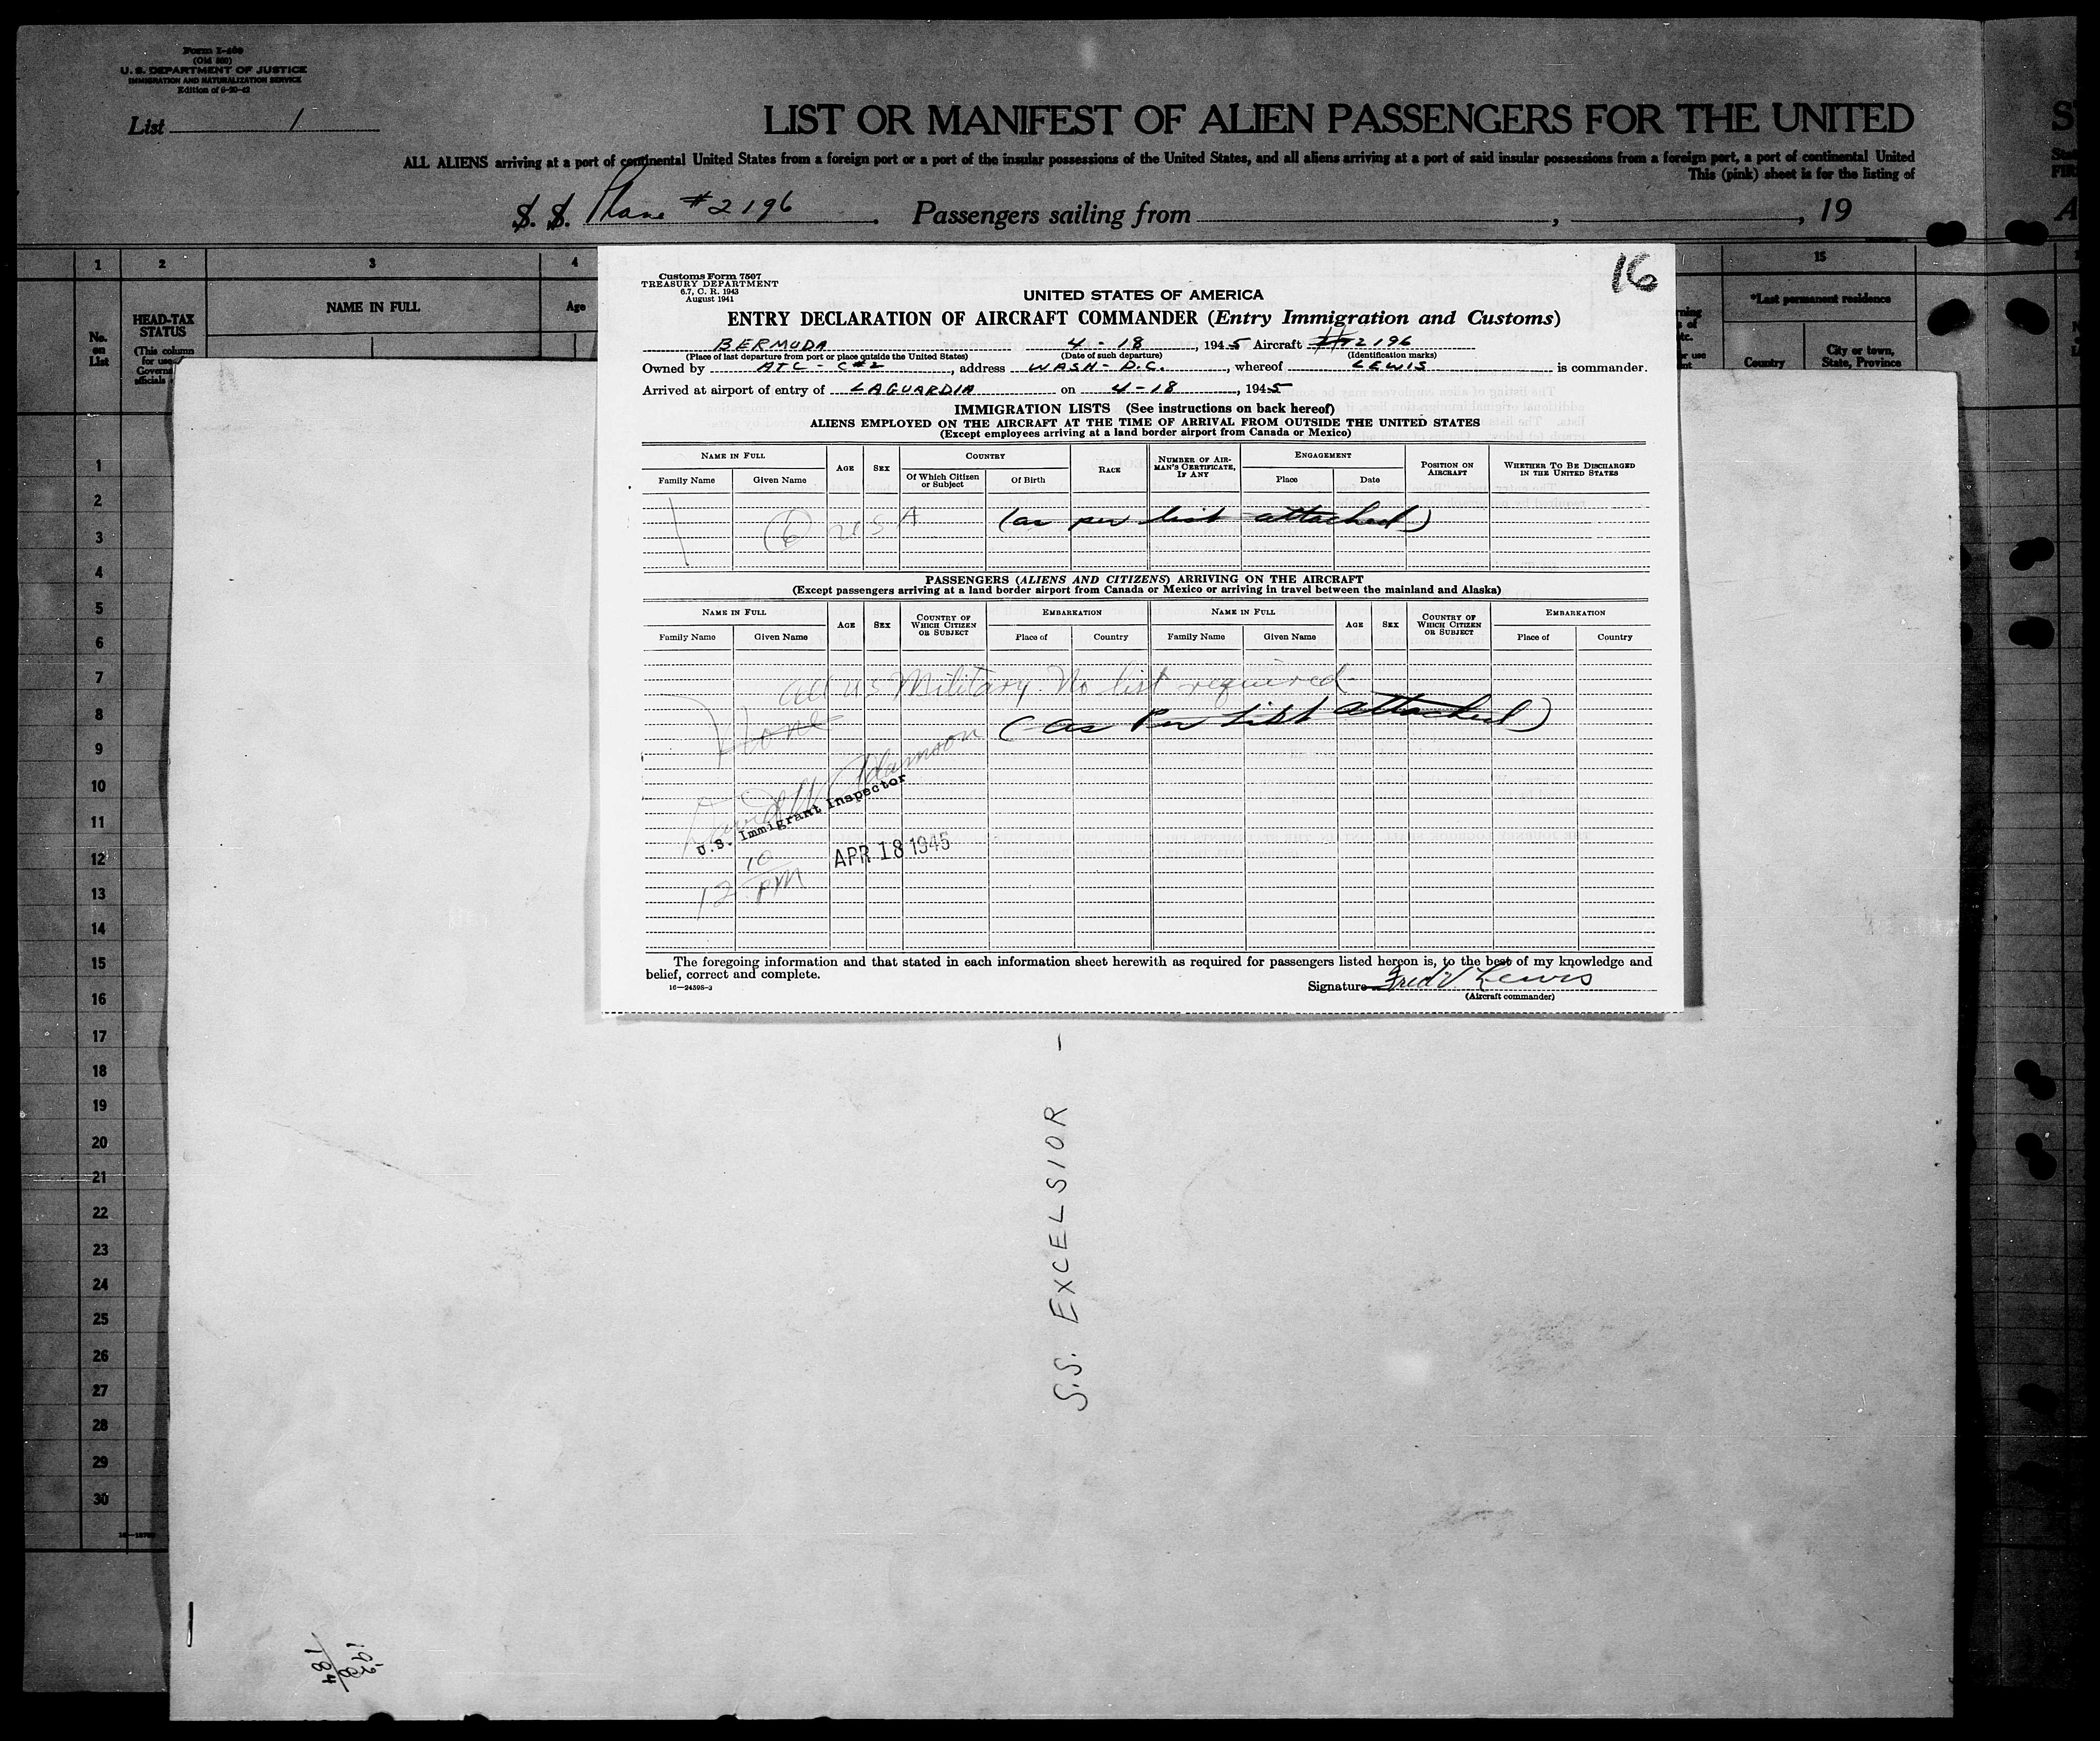 Form I-409
(Old 500)
U. S. DEPARTMENT OF JUSTICE
IMMIGRATION AND NATURALIZATION SERVICE
Edition of 6-20-42
List 1
LIST OR MANIFEST OF ALIEN PASSENGERS FOR THE UNITED
ALL ALIENS arriving at a port of continental United States from a foreign port or a port of the insular possessions of the United States, and all aliens arriving at a port of said insular possessions from a foreign port, a port of continental United
This (pink) sheet is for the listing of
S. S. Plane #2196. Passengers sailing from , , 19
1 2 3 4 15
No. on List
HEAD-TAX STATUS
(This column for use
Govern
officials
NAME IN FULL
Age
*Last permanent residence
Country
City or town, State, Province
16
Customs Form 7507
TREASURY DEPARTMENT
6.7, C. R. 1943
August 1941
UNITED STATES OF AMERICA
ENTRY DECLARATION OF AIRCRAFT COMMANDER (Entry Immigration and Customs)
BERMUDA 4-18, 1945 Aircraft #2196
(Place of last departure from port or place outside the United States) (Date of such departure) (Identification marks)
Owned by ATC - C#2, address WASH-D.C., whereof LEWIS is commander.
Arrived at airport of entry of LAGUARDIA on 4-18, 1945
IMMIGRATION LISTS (See instructions on back hereof)
ALIENS EMPLOYED ON THE AIRCRAFT AT THE TIME OF ARRIVAL FROM OUTSIDE THE UNITED STATES
(Except employees arriving at a land border airport from Canada or Mexico)
NAME IN FULL AGE SEX COUNTRY RACE NUMBER OF AIRMAN'S CERTIFICATE, IF ANY ENGAGEMENT POSITION ON AIRCRAFT WHETHER TO BE DISCHARGED IN THE UNITED STATES
Family Name Given Name Of Which Citizen or Subject Of Birth Place Date
6 USA (as per list attached)
PASSENGERS (ALIENS AND CITIZENS) ARRIVING ON THE AIRCRAFT
(Except passengers arriving at a land border airport from Canada or Mexico or arriving in travel between the mainland and Alaska)
NAME IN FULL AGE SEX COUNTRY OF WHICH CITIZEN OR SUBJECT EMBARKATION NAME IN FULL AGE SEX COUNTRY OF WHICH CITIZEN OR SUBJECT EMBARKATION
Family Name Given Name Place of Country Family Name Given Name Place of Country
all US Military. No list required
None (as Per List attached)
U.S. Immigrant Inspector
12 10 PM
APR 18 1945
The foregoing information and that stated in each information sheet herewith as required for passengers listed hereon is, to the best of my knowledge and
belief, correct and complete.
16—24598-3
Signature Fred V Lewis
(Aircraft commander)
1
2
3
4
5
6
7
8
9
10
11
12
13
14
15
16
17
18
19
20
21
22
23
24
25
26
27
28
29
30
S.S. EXCELSIOR -